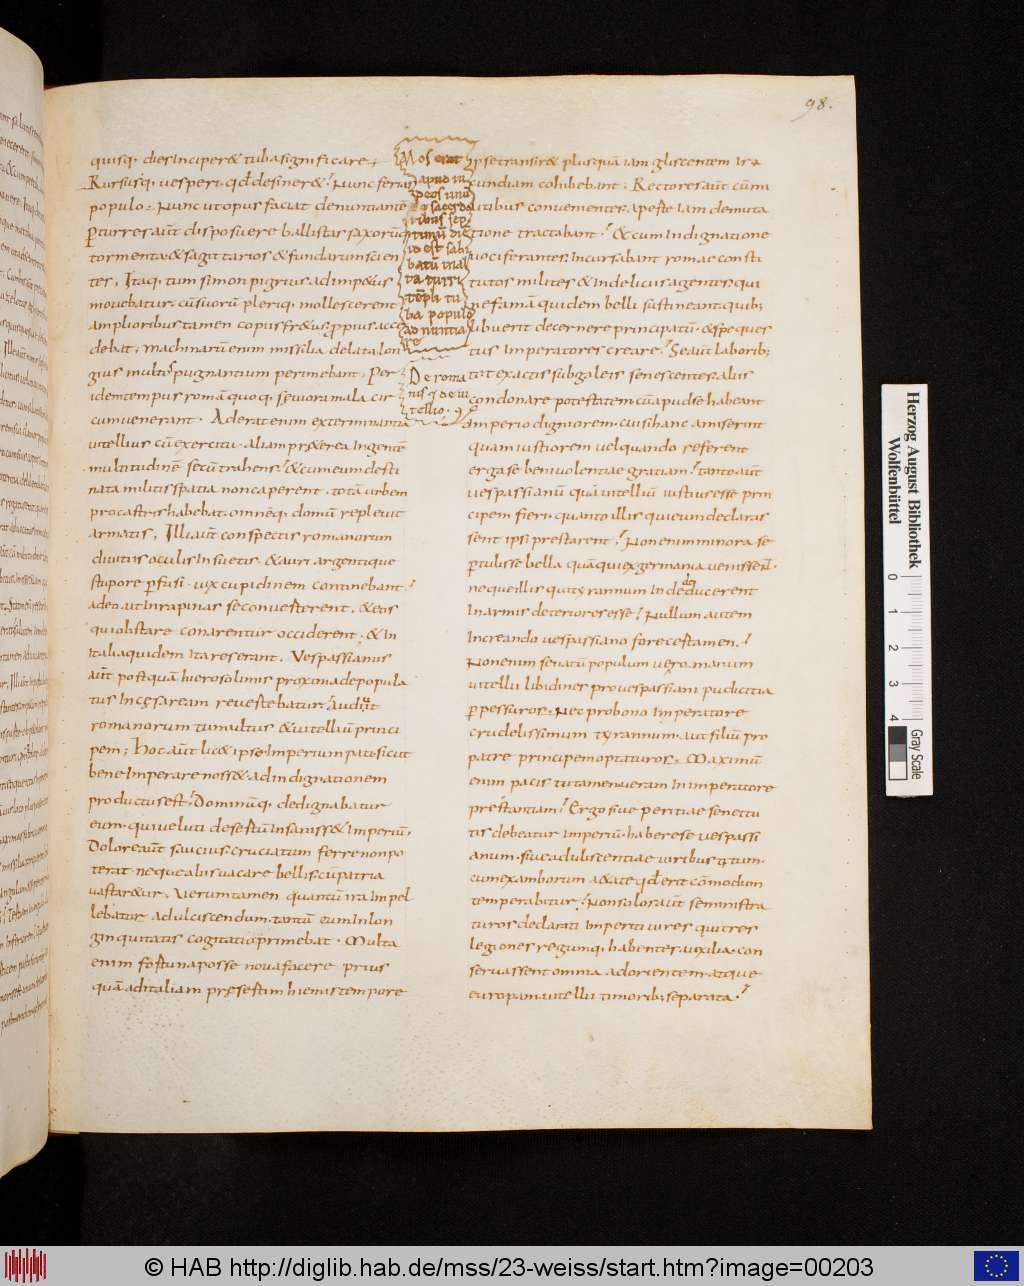 98.
quisq. dies inciper& tuba significare.
Rursusq. uesperi. qđ desiner&. Nunc feriari
populo. Nunc ut opus faciat denuntiantē
p̄ turres aūt disposuere ballistas saxorūq
tormenta. & sagittarios & fundarum scien
tes, Itaq. tum simon pigrius ad imp&us
mouebatur. cū suorū pleriq. mollescerent
amplioribus tamen copiis fr&us. propius acce
debat, machinarū enim missilia delata lon
gius multos pugnantium perimebant. Per
idem tempus romā quoq. seuiora mala cir
cumuenerant. Aderat enim ex germania
uitellius cū exercitu. Aliam pr&erea ingentē
multitudinē secū trahens. & cum eum desti
nata militis spatia non caperent. totā urbem
pro castris habebat. omnēq. domū repleuit
armatis, Illi aūt conspectis romanorum
diuitiis oculis insuetis. & auri argentique
stupore p̄fusi. uix cupidinem continebant.
adeo. ut in rapinas se conuesterent. & eos
qui obstare conarentur occiderent, & in
italia quidem ita res erant. Vespassianus
aūt postquā hierosolimis proxima depopula
tus in cęsaream reuestebatur. audiuit
romanorum tumultus & uitelliū princi
pem; hoc aūt lic& ipse imperium pati sicut
bene imperare noss&. ad indignationem
productus est. Dominūq. dedignabatur
eum. qui ueluti desestū insaniss& imperiū,
Dolore aūt saucius. cruciatum ferre non po
terat. neque aliis uacare bellis. cū patria
uastar&ur. Verum tamen quantū ira impel
lebatur ad ulciscendum. tantū eum in lon
ginquitatis cogitatio primebat. Multa
enim fostuna posse noua facere prius
quā ad italiam pręsestim hiemis tempore
Mos erat
apud iu
deos unū
ribus sep
timū diē
id est sab
batū mal
ta turri
tēpli tu
ba populo
adnuntia
re
De roma
nis q de ui
tellio.
ipse transir& plusquā iam gliscentem ira
cundiam cohibebant; Rectores aūt cū mi
litibus conuenientes. apeste iam de muta
tione tractabant. & cum indignatione
uociferantes. incursabant romae consti
tutos milites & in deliciis agentes. qui
ne famā quidem belli sustineant. quib;
libuerit decernere principatū. & spe ques
tus imperatores creare. Se aūt laborib;
tot exactis sub galeis senescentes. aliis
condonare potestatem. cū apud se habeant
imperio digniorem. cui si hanc amiserint
quam iustiorem uel quando referent
erga se beniuolentiae gratiam. tanto aūt
uespassianū quā uitelliū iustius esse prin
cipem fieri. quanto illis qui eum declaras
sent ipsi prestarent. Non enim minora se
p̄tulisse bella quā qui ex germania uenissent.
neque illis qui tyrannum inde deducerent
in armis deteriores esse. Nullum autem
in creando uespassiano fore cestamen.
Non enim senatū populum ue romanum
uitellii libidines pro uespassiani pudicitia
p̄pessuros. Nec pro bono imperatore
crudelissimum tyrannum. aut filiū pro
patre principem optaturos. Maximū
enim pacis tutamen ueram in imperatore
prestantiam. Ergo siue peritiae senectu
tis debeatur imperiū. habere se uespassi
anum. siue adulescentiae uiribus titum.
cum ex amborum a&ate qđ erit cōmodum
temperabitur. Non solos aūt se ministra
turos declarati imperii uires qui tres
legiones regumq. habentes auxilia. con
seruassent omnia ad orientem. atque
europam. uitellii timorib; separata.
Herzog August Bibliothek
Wolfenbüttel
0 1 2 3 4
Gray Scale
© HAB http://diglib.hab.de/mss/23-weiss/start.htm?image=00203